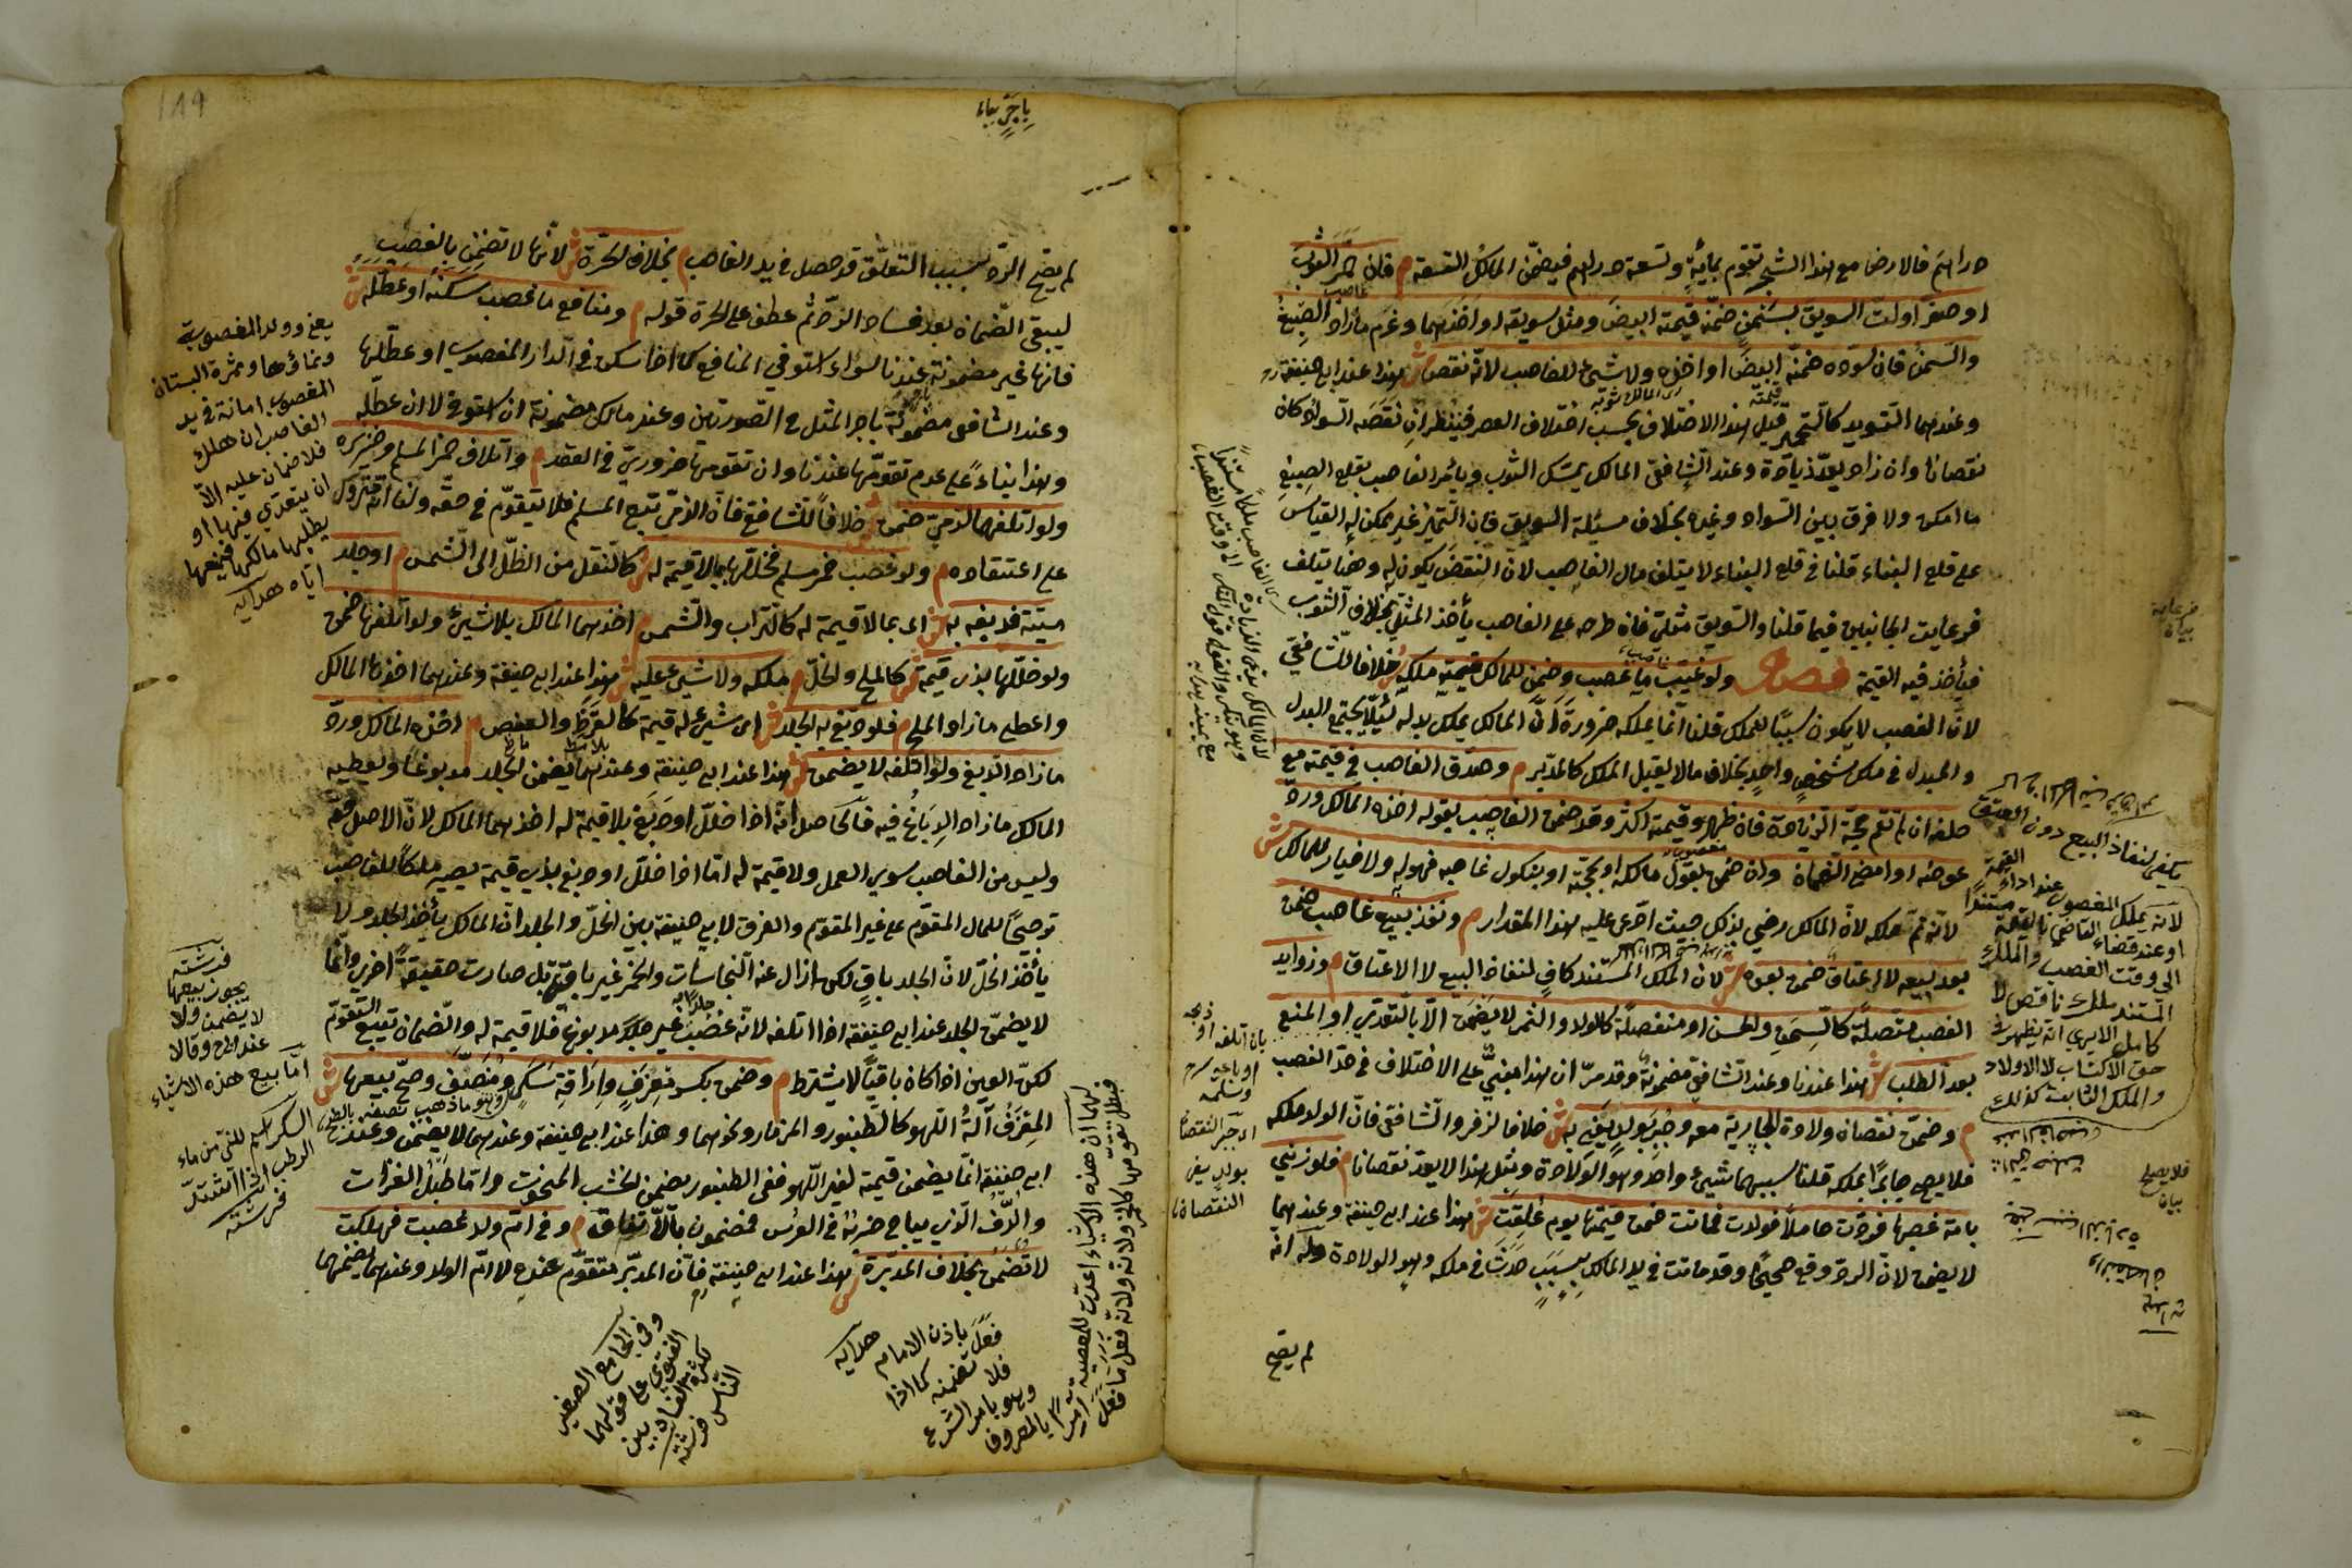 دراهم فالارض مع هذا الشجر تقوم بمائة وتسعة دراهم فيضمن المالك التسعة م فان حمر الثوب
او صفر اولت السويق بسمن ضمنه قيمته ابيض ومثل سويقه او اخذهما وغرم ما زاد الصبغ
والسمن فان سوده ضمنه ابيض او اخذه ولا شيء للغاصب لانه نقص ش هذا عند ابي حنيفة رح
وعندهما التسويد كالتحمير قيل هذا الاختلاف بحسب اختلاف العصر فينظر ان نقصه السواد كان
نقصانا وان زاد يعد زيادة وعند الشافعي المالك يمسك الثوب ويأمر الغاصب بقلع الصبغ
ما امكن ولا فرق بين السواد وغيره بخلاف مسئلة السويق فان التمييز غير ممكن له القياس
على قلع البناء قلنا في قلع البناء لا يتلف مال الغاصب لان النقض يكون له وهنا يتلف
فرعاية الجانبين فيما قلنا والسويق مثلي فان طرحه على الغاصب يأخذ المثلي بخلاف الثوب
فيأخذ فيه القيمة فصل ولو غيب ما غصب وضمن للمالك قيمته ملكه ش خلافا للشافعي
لان الغصب لا يكون سببا للملك قلنا انما يملكه ضرورة ان المالك يملك بدله لئلا يجتمع البدل
والمبدل في ملك شخص واحد بخلاف ما لا يقبل الملك كالمدبر م وصدق الغاصب في قيمته مع
حلفه ان لم تقم حجة الزيادة فان ظهر وقيمته اكثر وقد ضمن الغاصب بقوله اخذه المالك ورد
عوضه او امضى الضمان وان ضمن بقول مالكه او بحجة او بنكول غاصبه فهو له ولا خيار للمالك ش
لانه تم ملكه لان المالك رضي بذلك حيث ادعى عليه هذا المقدار م ونفذ بيع غاصب ضمن
بعد بيعه لا اعتاق ضمن بعده ش لان الملك المستند كاف لنفاذ البيع لا الاعتاق م وزوايد
الغصب متصلة كالسمن والحسن او منفصلة كالولد والثمر لا يضمن الا بالتعدي او المنع
بعد الطلب ش هذا عندنا وعند الشافعي مضمونة وقد مر ان هذا مبني على الاختلاف في حد الغصب
م وضمن نقصان ولادة الجارية معه وجبر بولد يفي به ش خلافا لزفر والشافعي فان الولد ملكه
فلا يصلح جابرا لملكه قلنا سببهما شيء واحد وهو الولادة ومثل هذا لا يعد نقصانا م فلو زنى
بامة غصبها فردت حاملا فولدت فماتت ضمن قيمتها يوم علقت ش هذا عند ابي حنيفة وعندهما
لا يضمن لان الرد وقع صحيحا وقد ماتت في يد المالك بسبب حدث في ملكه وهو الولادة وله انه
لم يصح
لانه يملك المغصوب عند اداء القيمة
او عند قضاء القاضي بالقيمة مستندا
الى وقت الغصب والملك
المستند ملك ناقص لا
كامل الا يرى انه يظهر في
حق الاكتساب لا الاولاد
بان اتلفه او ذبحه
او باعه
وسلمه
النقصان
بولد يفي
النقصان
فلا يصلح
بيان
فرعاية
بيان
189
لم يصح الرد بسبب التعلق قد حصل في يد الغاصب م بخلاف الحرة ش لانها لا تضمن بالغصب
ليبقى الضمان بعد فساد الرد ثم عطف على الحرة قوله م ومنافع ما غصب سكنه او عطله ش
فانها غير مضمونة عندنا سواء استوفى المنافع كما اذا سكن في الدار المغصوب او عطلها
وعند الشافعي مضمونة باجر المثل في الصورتين وعند مالك مضمونة ان استوفى لا ان عطله
وهذا بناء على عدم تقومها عندنا وان تقومها ضروري في العقد م واتلاف خمر المسلم وخنزيره
ولو اتلفهما لذمي ضمن ش خلافا للشافعي فان الذمي تبع المسلم فلا تتقوم في حقه ولنا انه متروك
على اعتقاده م ولو غصب خمر مسلم فخللها بما لا قيمة له ش كالنقل من الظل الى الشمس م او جلد
ميتة فدبغه به ش اي بما لا قيمة له كالتراب والشمس م اخذهما المالك بلا شيء ولو اتلفها ضمن
ولو خللها بذي قيمة ش كالملح والخل م ملكه ولا شيء عليه ش هذا عند ابي حنيفة وعندهما اخذها المالك
واعطى ما زاد الملح م فلو دبغ به الجلد ش اي شيء له قيمة كالقرظ والعفص م اخذه المالك ورد
ما زاد الدبغ ولو اتلفه لا يضمن ش هذا عند ابي حنيفة وعندهما يضمن الجلد مدبوغا ويعطيه
المالك ما زاد الدباغ فيه فالحاصل انه اذا خلل او دبغ بلا قيمة له اخذهما المالك لان الاصل حقه
وليس من الغاصب سوى العمل ولا قيمة له اما اذا خلل او دبغ بذي قيمة يصير ملكا للغاصب
ترجيحا للمال المتقوم على غير المتقوم والفرق لابي حنيفة بين الخل والجلد ان المالك يأخذ الجلد ولا
يأخذ الخل لان الجلد باق لكن ازال عنه النجاسات والخمر غير باقية بل صارت حقيقة اخرى وانما
لا يضمن الجلد عند ابي حنيفة اذا اتلفه لانه غصب غير مدبوغ فلا قيمة له والضمان تبع التقوم
لكن العين اذا كان باقيا لا يشترط م وضمن بكسر معزف واراقة سكر ومنصف وصح بيعها ش
المعزف آلة اللهو كالطنبور والمزمار ونحوهما وهذا عند ابي حنيفة وعندهما لا يضمن وعند
ابي حنيفة انما يضمن قيمته لغير اللهو ففي الطنبور يضمن الخشب المنحوت واما طبل الغزات
والدف الذي يباح ضربه في العرس فمضمون بالاتفاق م وفي ام ولد غصبت فهلكت
لا تضمن بخلاف المدبرة ش هذا عند ابي حنيفة فان المدبر متقوم عنده لا ام الولد وعندهما يضمنهما
يعني وولد المغصوبة
ونماؤها وثمرة البستان
المغصوب امانة في يد
الغاصب ان هلك
فلا ضمان عليه الا
ان يتعدى فيها او
يطلبها مالكها فيمنعها
اياه هدايه
فرشته
يجوز بيعها
لا يضمن ولا
وقالا
اما بيع هذه الاشياء
السكر اسم للنئ من ماء
الرطب اذا اشتد
فرشته
وفي الجامع الصغير
الفتوى على قولهما
لكثرة الفساد بين
الناس فرشته
فعل باذن الامام هدايه
فلا تضمنه كما اذا
وهو بامر الشرع
لهما ان هذه الاشياء اعدت للمعصية
فبطل تقومها كالخمر ولانه فعل ما فعل